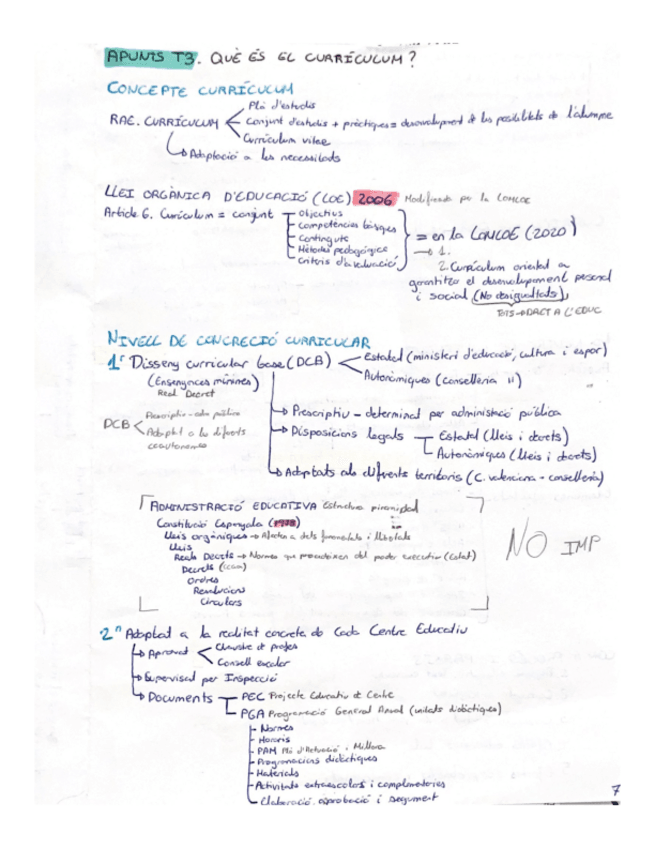 APUNTS T3. QUÈ ÉS EL CURRÍCULUM?
CONCEPTE CURRÍCULUM
Pla d'estudis
RAE. CURRÍCULUM Conjunt d'estudis + pràctiques = desenvolupament de les posibilitats de l'alumne
Currículum vitae
Adaptació a les necessitats
LLEI ORGÀNICA D'EDUCACIÓ (LOE) 2006 Modificada per la LOMLOE
Article 6. Currículum = conjunt
objectius
competències bàsiques
Continguts
Mètodes pedagògics
Criteris d'avaluació
= en la LOMLOE (2020)
→ 1.
2. Currículum orientat a
garantitza el desenvolupament personal
i social (No desigualtats),
→ DRET A L'EDUC
NIVELL DE CONCRECIÓ CURRICULAR
1r Disseny curricular base (DCB)
Estatal (ministeri d'educació, cultura i esport)
Autonòmiques (conselleria ")
(Ensenyances mínimes)
Real Decret
DCB
Prescriptiu - adm pública
Adaptat a les diferents
ccautonomes
Prescriptiu - determinat per administració pública
Disposicions legals
Estatal (lleis i decrets)
Autonòmiques (lleis i decrets)
Adaptats als diferents territoris (C. valenciana - conselleria)
ADMINISTRACIÓ EDUCATIVA Estructura piramidal
Constitució Espanyola (1978)
Lleis orgàniques → Afecten a drets fonamentals i llibertats
Lleis
Reals Decrets → Normes que procedeixen del poder executiu (Estat)
Decrets (ccaa)
Ordres
Resolucions
Circulars
NO IMP
2n Adaptat a la realitat concreta de Cada Centre Educatiu
Aprovat
Claustre de profes
Consell escolar
Supervisat per Inspecció
Documents
PEC Projecte Educatiu de Centre
PGA Programació General Anual (unitats didàctiques)
Normes
Horaris
PAM Pla d'Actuació i Millora
Programacions didàctiques
Materials
Activitats extraescolars i complementaries
Elaboració, aprobació i seguiment
7